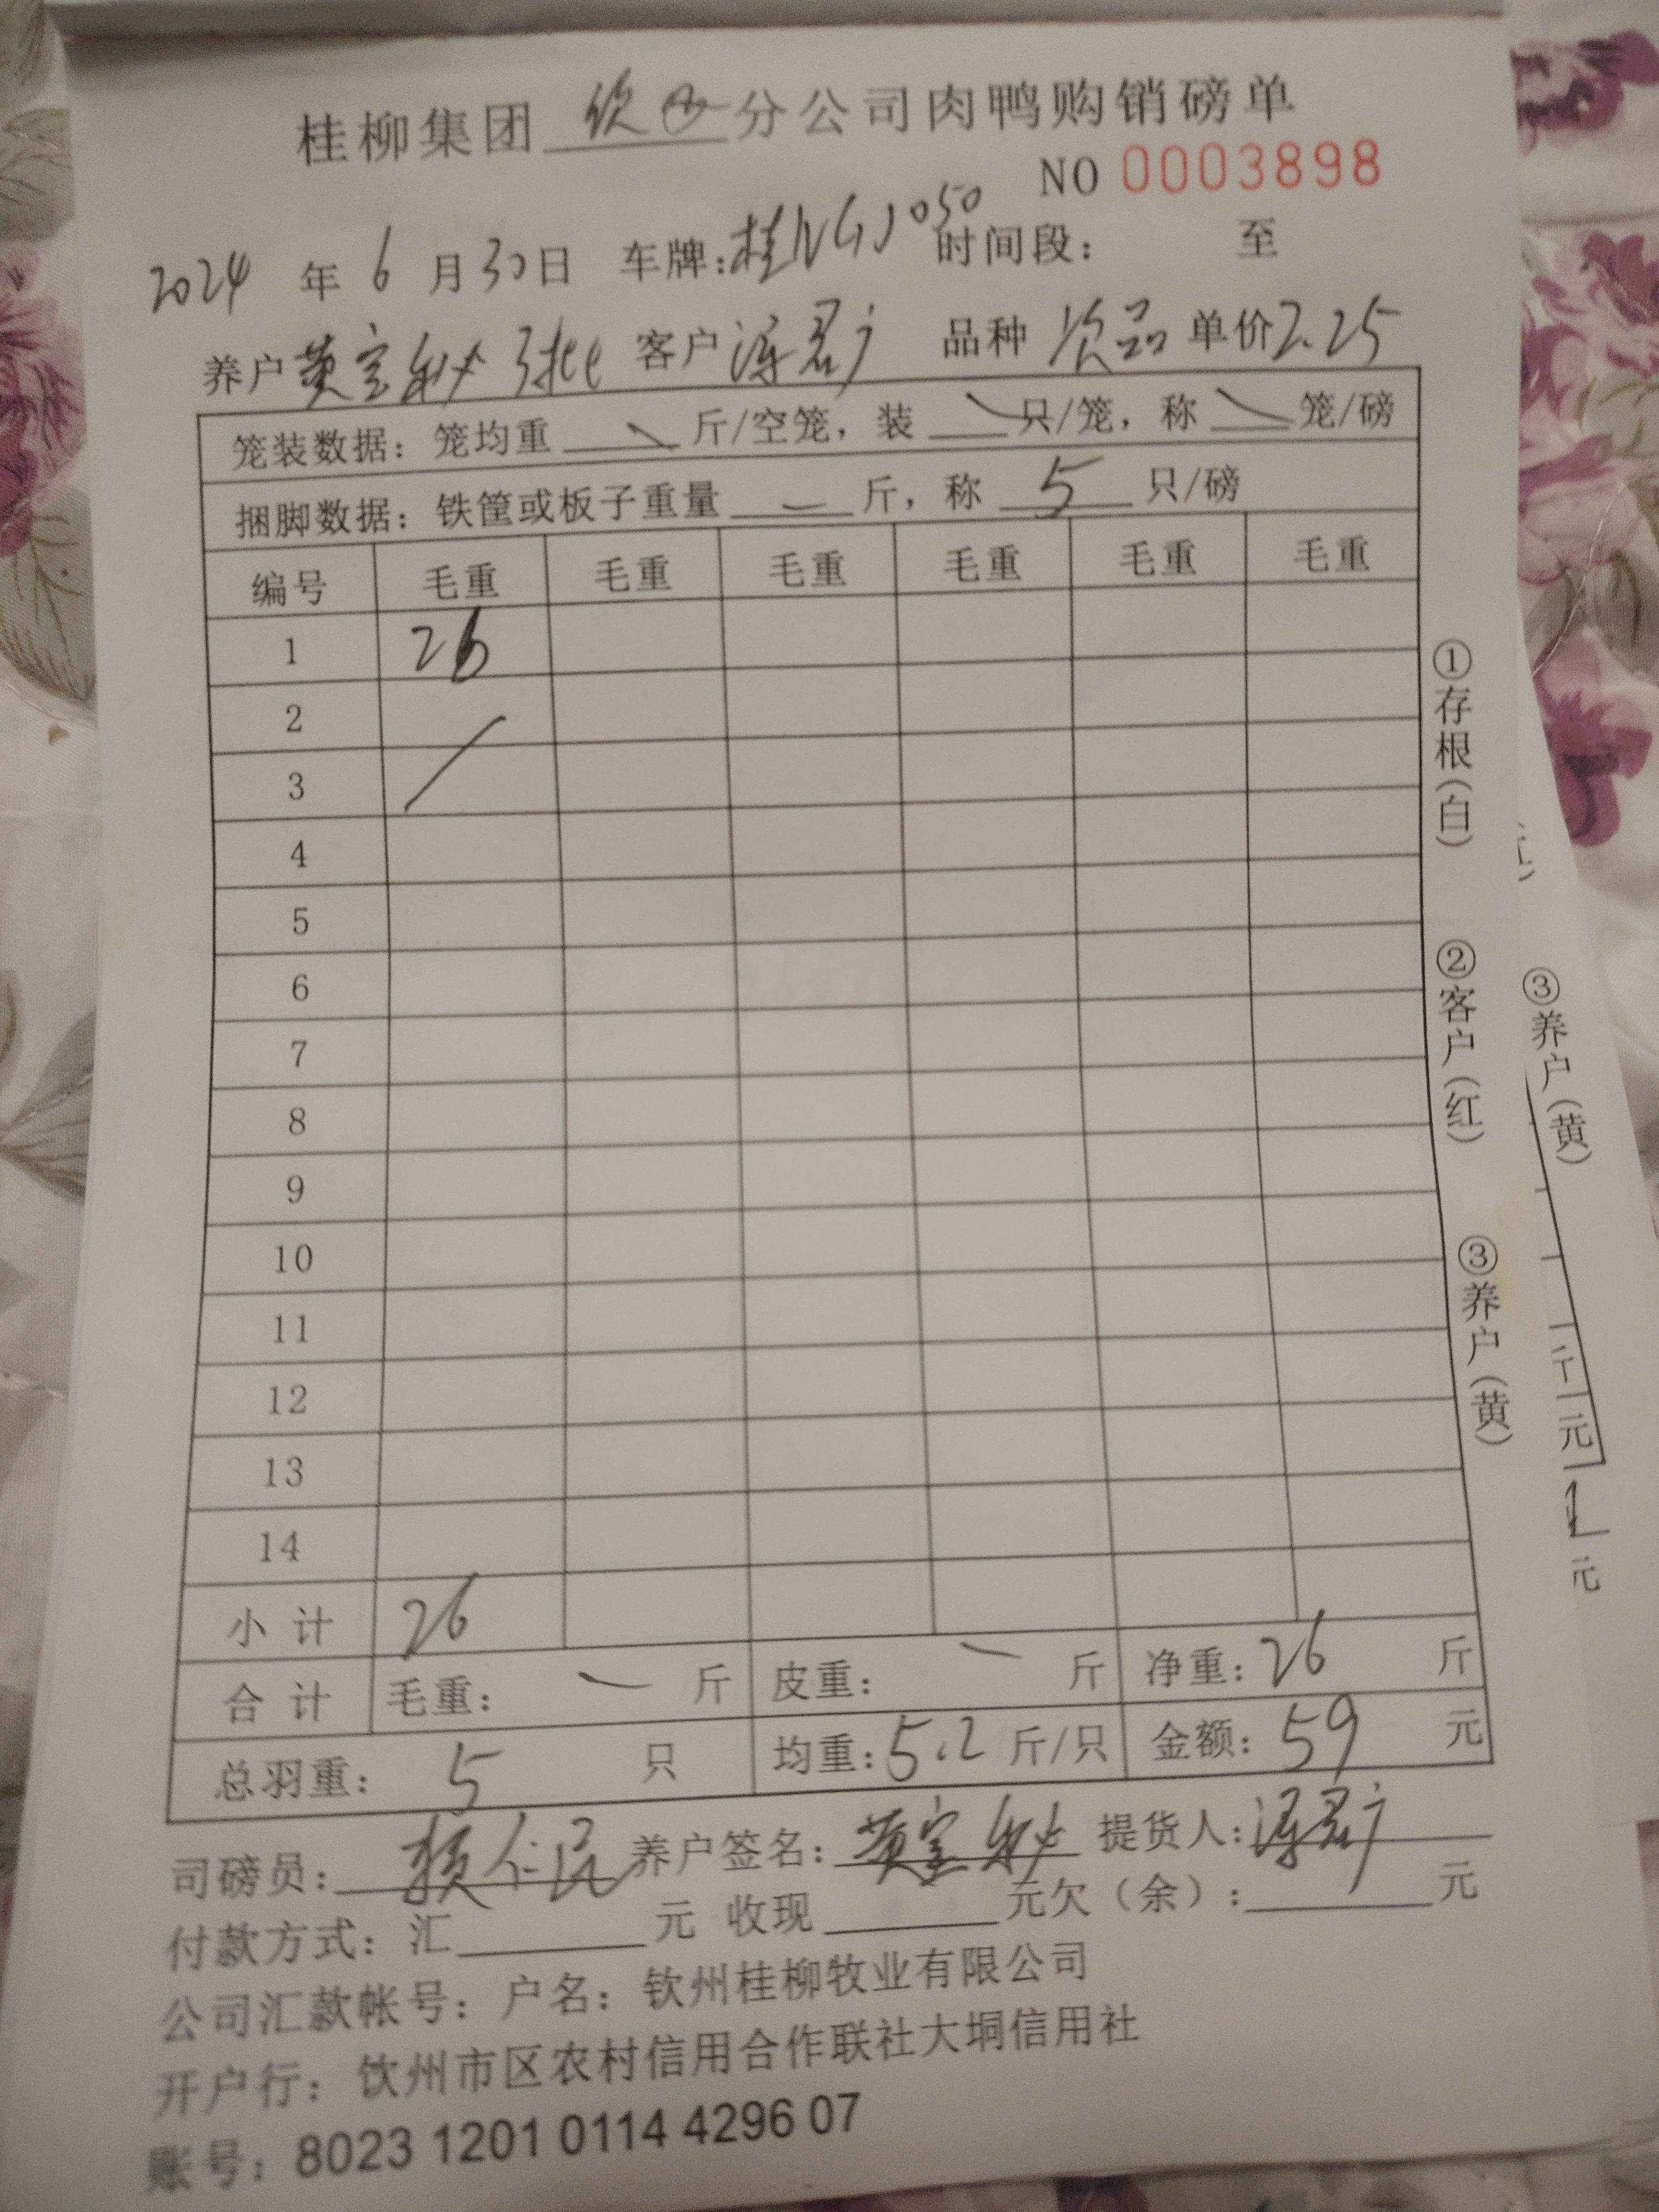 桂柳集团 钦州 分公司肉鸭购销磅单
NO 0003898
2024 年 6 月 30 日 车牌: 桂NGJ050 时间段: 至
养户 黄宝秋 3批 客户 品种 次品 单价 2.25
笼装数据: 笼均重 斤/空笼, 装 只/笼, 称 笼/磅
捆脚数据: 铁筐或板子重量 一 斤, 称 5 只/磅
编号 毛重 毛重 毛重 毛重 毛重 毛重
1 26
2
3
4
5
6
7
8
9
10
11
12
13
14
小计 26
合计 毛重: 一 斤 皮重: 一 斤 净重: 26 斤
总羽重: 5 只 均重: 5.2 斤/只 金额: 59 元
司磅员: 赖仁民 养户签名: 黄宝秋 提货人:
付款方式: 汇 元 收现 元欠(余): 元
公司汇款帐号: 户名: 钦州桂柳牧业有限公司
开户行: 钦州市区农村信用合作联社大垌信用社
账号: 8023 1201 0114 4296 07
①存根(白)
②客户(红)
③养户(黄)
③养户(黄)
元
元